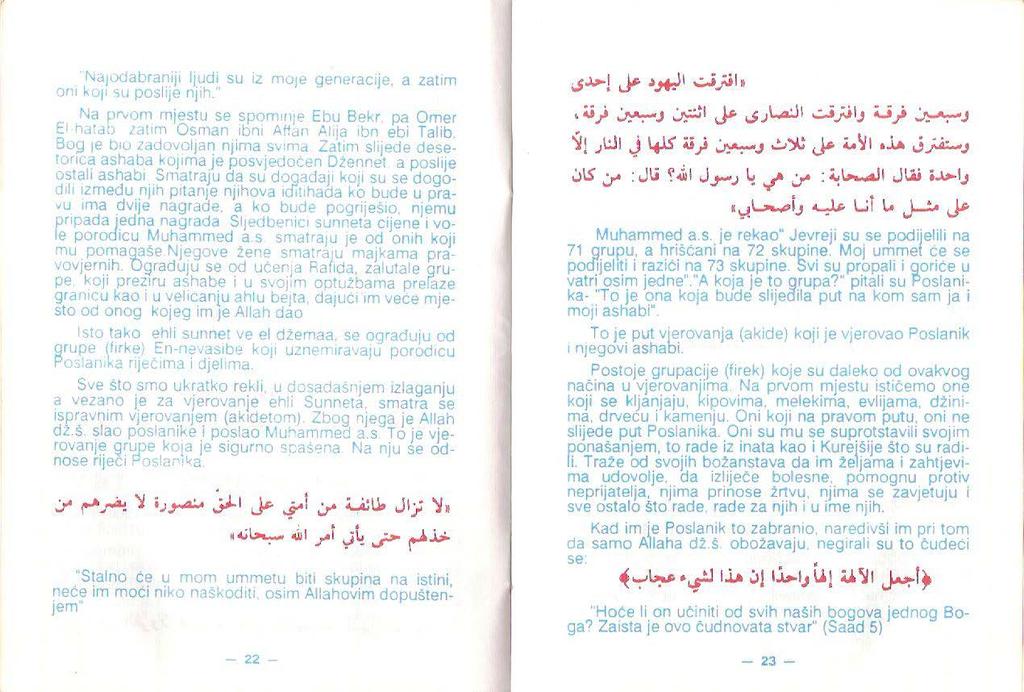 "Najodabraniji ljudi su iz moje generacije, a zatim
oni koji su poslije njih."
Na prvom mjestu se spominje Ebu Bekr, pa Omer
El-hatab zatim Osman ibni Affan Alija ibn ebi Talib.
Bog je bio zadovoljan njima svima. Zatim slijede dese-
torica ashaba kojima je posvjedočen Džennet, a poslije
ostali ashabi. Smatraju da su događaji koji su se dogo-
dili između njih pitanje njihova iditihada ko bude u pra-
vu ima dvije nagrade, a ko bude pogriješio, njemu
pripada jedna nagrada. Sljedbenici sunneta cijene i vo-
le porodicu Muhammed a.s. smatraju je od onih koji
mu pomagaše.Njegove žene smatraju majkama pra-
vovjernih. Ograđuju se od učenja Rafida, zalutale gru-
pe, koji preziru ashabe i u svojim optužbama prelaze
granicu kao i u veličanju ahlu bejta, dajući im veće mje-
sto od onog kojeg im je Allah dao
Isto tako ehli sunnet ve el džemaa, se ograđuju od
grupe (firke) En-nevasibe koji uznemiravaju porodicu
Poslanika riječima i djelima.
Sve što smo ukratko rekli, u dosadašnjem izlaganju
a vezano je za vjerovanje ehli Sunneta, smatra se
ispravnim vjerovanjem (akidetom). Zbog njega je Allah
dž.š. slao poslanike i poslao Muhammed a.s. To je vje-
rovanje grupe koja je sigurno spašena. Na nju se od-
nose riječi Poslanika.
«لا تزال طائفة من أمتي على الحق منصورة لا يضرهم من
خذلهم حتى يأتي أمر الله سبحانه»
"Stalno će u mom ummetu biti skupina na istini,
neće im moći niko naškoditi, osim Allahovim dopušten-
jem"
— 22 —
«افترقت اليهود على إحدى
وسبعين فرقة وافترقت النصارى على اثنتين وسبعين فرقة،
وستفترق هذه الأمة على ثلاث وسبعين فرقة كلها في النار إلّا
واحدة فقال الصحابة: من هي يا رسول الله؟ قال: من كان
على مثل ما أنا عليه وأصحابي»
Muhammed a.s. je rekao" Jevreji su se podijelili na
71 grupu, a hrišćani na 72 skupine. Moj ummet će se
podijeliti i razići na 73 skupine. Svi su propali i goriće u
vatri osim jedne"."A koja je to grupa?" pitali su Poslani-
ka- "To je ona koja bude slijedila put na kom sam ja i
moji ashabi".
To je put vjerovanja (akide) koji je vjerovao Poslanik
i njegovi ashabi.
Postoje grupacije (firek) koje su daleko od ovakvog
načina u vjerovanjima. Na prvom mjestu ističemo one
koji se kljanjaju, kipovima, melekima, evlijama, džini-
ma, drveću i kamenju. Oni koji na pravom putu, oni ne
slijede put Poslanika. Oni su mu se suprotstavili svojim
ponašanjem, to rade iz inata kao i Kurejšije što su radi-
li. Traže od svojih božanstava da im željama i zahtjevi-
ma udovolje, da izliječe bolesne, pomognu protiv
neprijatelja, njima prinose žrtvu, njima se zavjetuju i
sve ostalo što rade, rade za njih i u ime njih.
Kad im je Poslanik to zabranio, naredivši im pri tom
da samo Allaha dž.š. obožavaju, negirali su to čudeći
se:
﴿أجعل الآلهة إلهًا واحدًا إن هذا لشيء عجاب﴾
"Hoće li on učiniti od svih naših bogova jednog Bo-
ga? Zaista je ovo čudnovata stvar" (Saad 5)
— 23 —